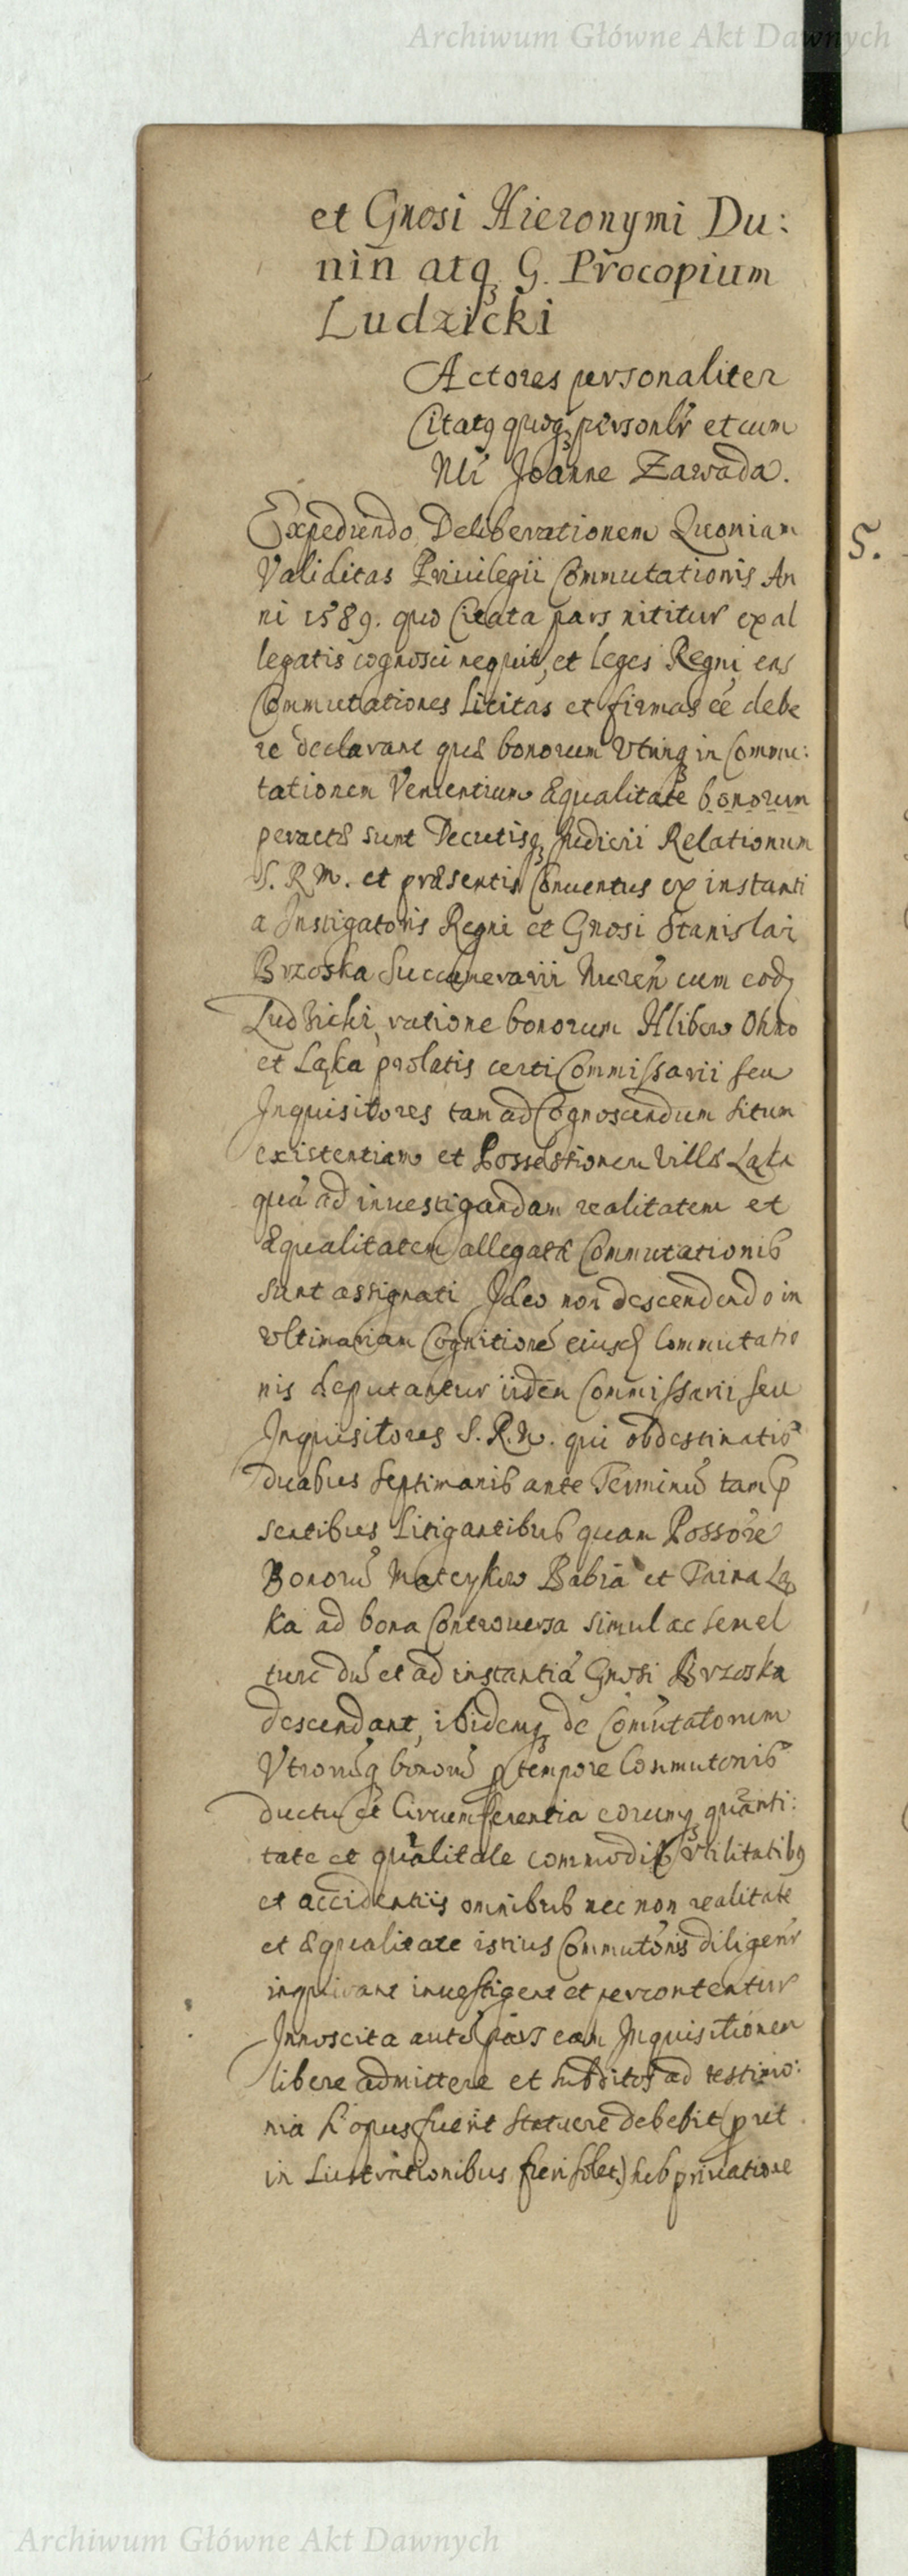 Archiwum Główne Akt Dawnych
et Gnosi Hieronymi Du:
nin atq₃ G. Procopium
Ludzicki
Actores personaliter
Citatq quoq₃ personlr et cum
Nli Joanne Zawada.
Expediendo Deliberationem Quoniam
Validitas Priuilegii Commutationis An
ni 1589. quo Citata pars nititur ex al
legatis cognosci nequit, et leges Regni eas
Commutationes licitas et firmas eé debe
re declarant quæ bonorum Utrinq₃ in Commu:
tationem Venientium Æqualitate bonorum
peractæ sunt Decretisq₃ Judicii Relationum
S. R. M. et præsentis Conuentus ex instanti
a Instigatoris Regni et Gnosi Stanislai
Brzoska Succamerarii Nuren cum eod
Ludzicki, ratione bonorum Hlibow Okno
et Ląka prolatis certi Commissarii seu
Inquisitores tam ad Cognoscendum situm
existentiam et Possessionem Villæ Ląka
quá ad inuestigandam realitatem et
Æqualitatem allegatæ Commutationis
sunt assignati Ideo non descendendo in
Ultimariam Cognitioné eiusd Commutatio
nis deputantur iidem Commissarii seu
Inquisitores S. R. M. qui obdestinatis
duabus septimanis ante Terminú tam p
sentibus Litigantibus quam Possore
Bonorú Mateykow Babia et Taina Lą
ka ad bona Controuersa simul ac semel
tunc dú et ad instantiá Gnosi Brzoska
descendant, ibidemq₃ de Comutatorum
Utronúq bonorú p tempore Commutonis
ductu et Circumferentia eorumq₃ quanti:
tate et qualitate commodis utilitatibq
et accidentiis omnibus nec non realitate
et Æqualitate istius Commutonis diligenr
inquirant inuestigent et percontentur
Innoscita auté pars eam Inquisitionem
libere admittere et subditos ad testimo:
nia si opus fuerit statuere debebit (prt
in Lustrationibus fieri solet) sub priuatione
5.
Archiwum Główne Akt Dawnych